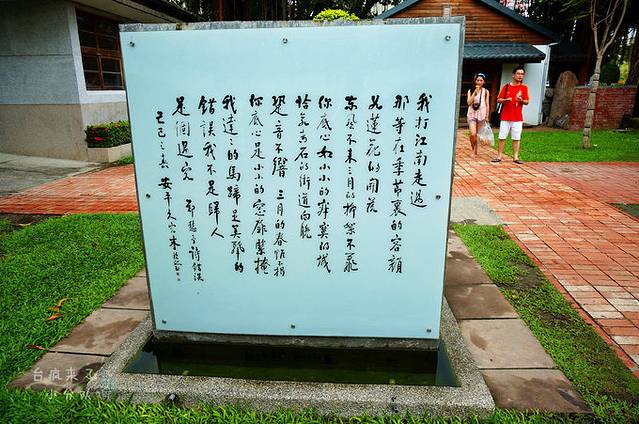 我打江南走過
那等在季節裏的容顏
如蓮花的開落
東風不來三月的柳絮不飛
你底心如小小的寂寞的城
恰若青石的街道向晚
跫音不響 三月的春帷不揭
你底心是小小的窗扉緊掩
我達達的馬蹄是美麗的
錯誤我不是歸人
是個過客 鄭愁予詩錯誤
己巳之春 安平